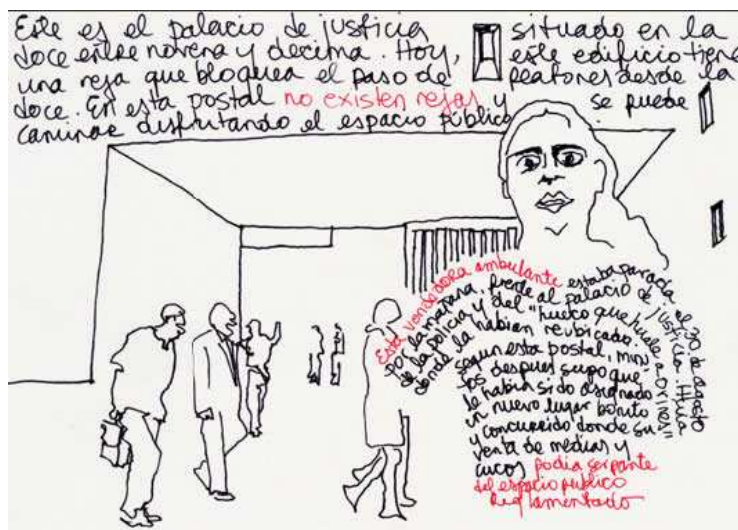 Este es el palacio de justicia situado en la
doce entre novena y decima. Hoy, este edificio tiene
una reja que bloquea el paso de peatones desde la
doce. En esta postal no existen rejas y se puede
caminar disfrutando el espacio público
Esta vendedora ambulante estaba parada el 30 de agosto
por la mañana, frente al palacio de justicia. Huía
de la policía y del "hueco que huele a orines"
donde la habían reubicado.
según esta postal, minu-
tos después supo que
le había sido asignado
un nuevo lugar bonito
y concurrido donde su
venta de medias y
cucos podía ser parte
del espacio público
Reglamentado